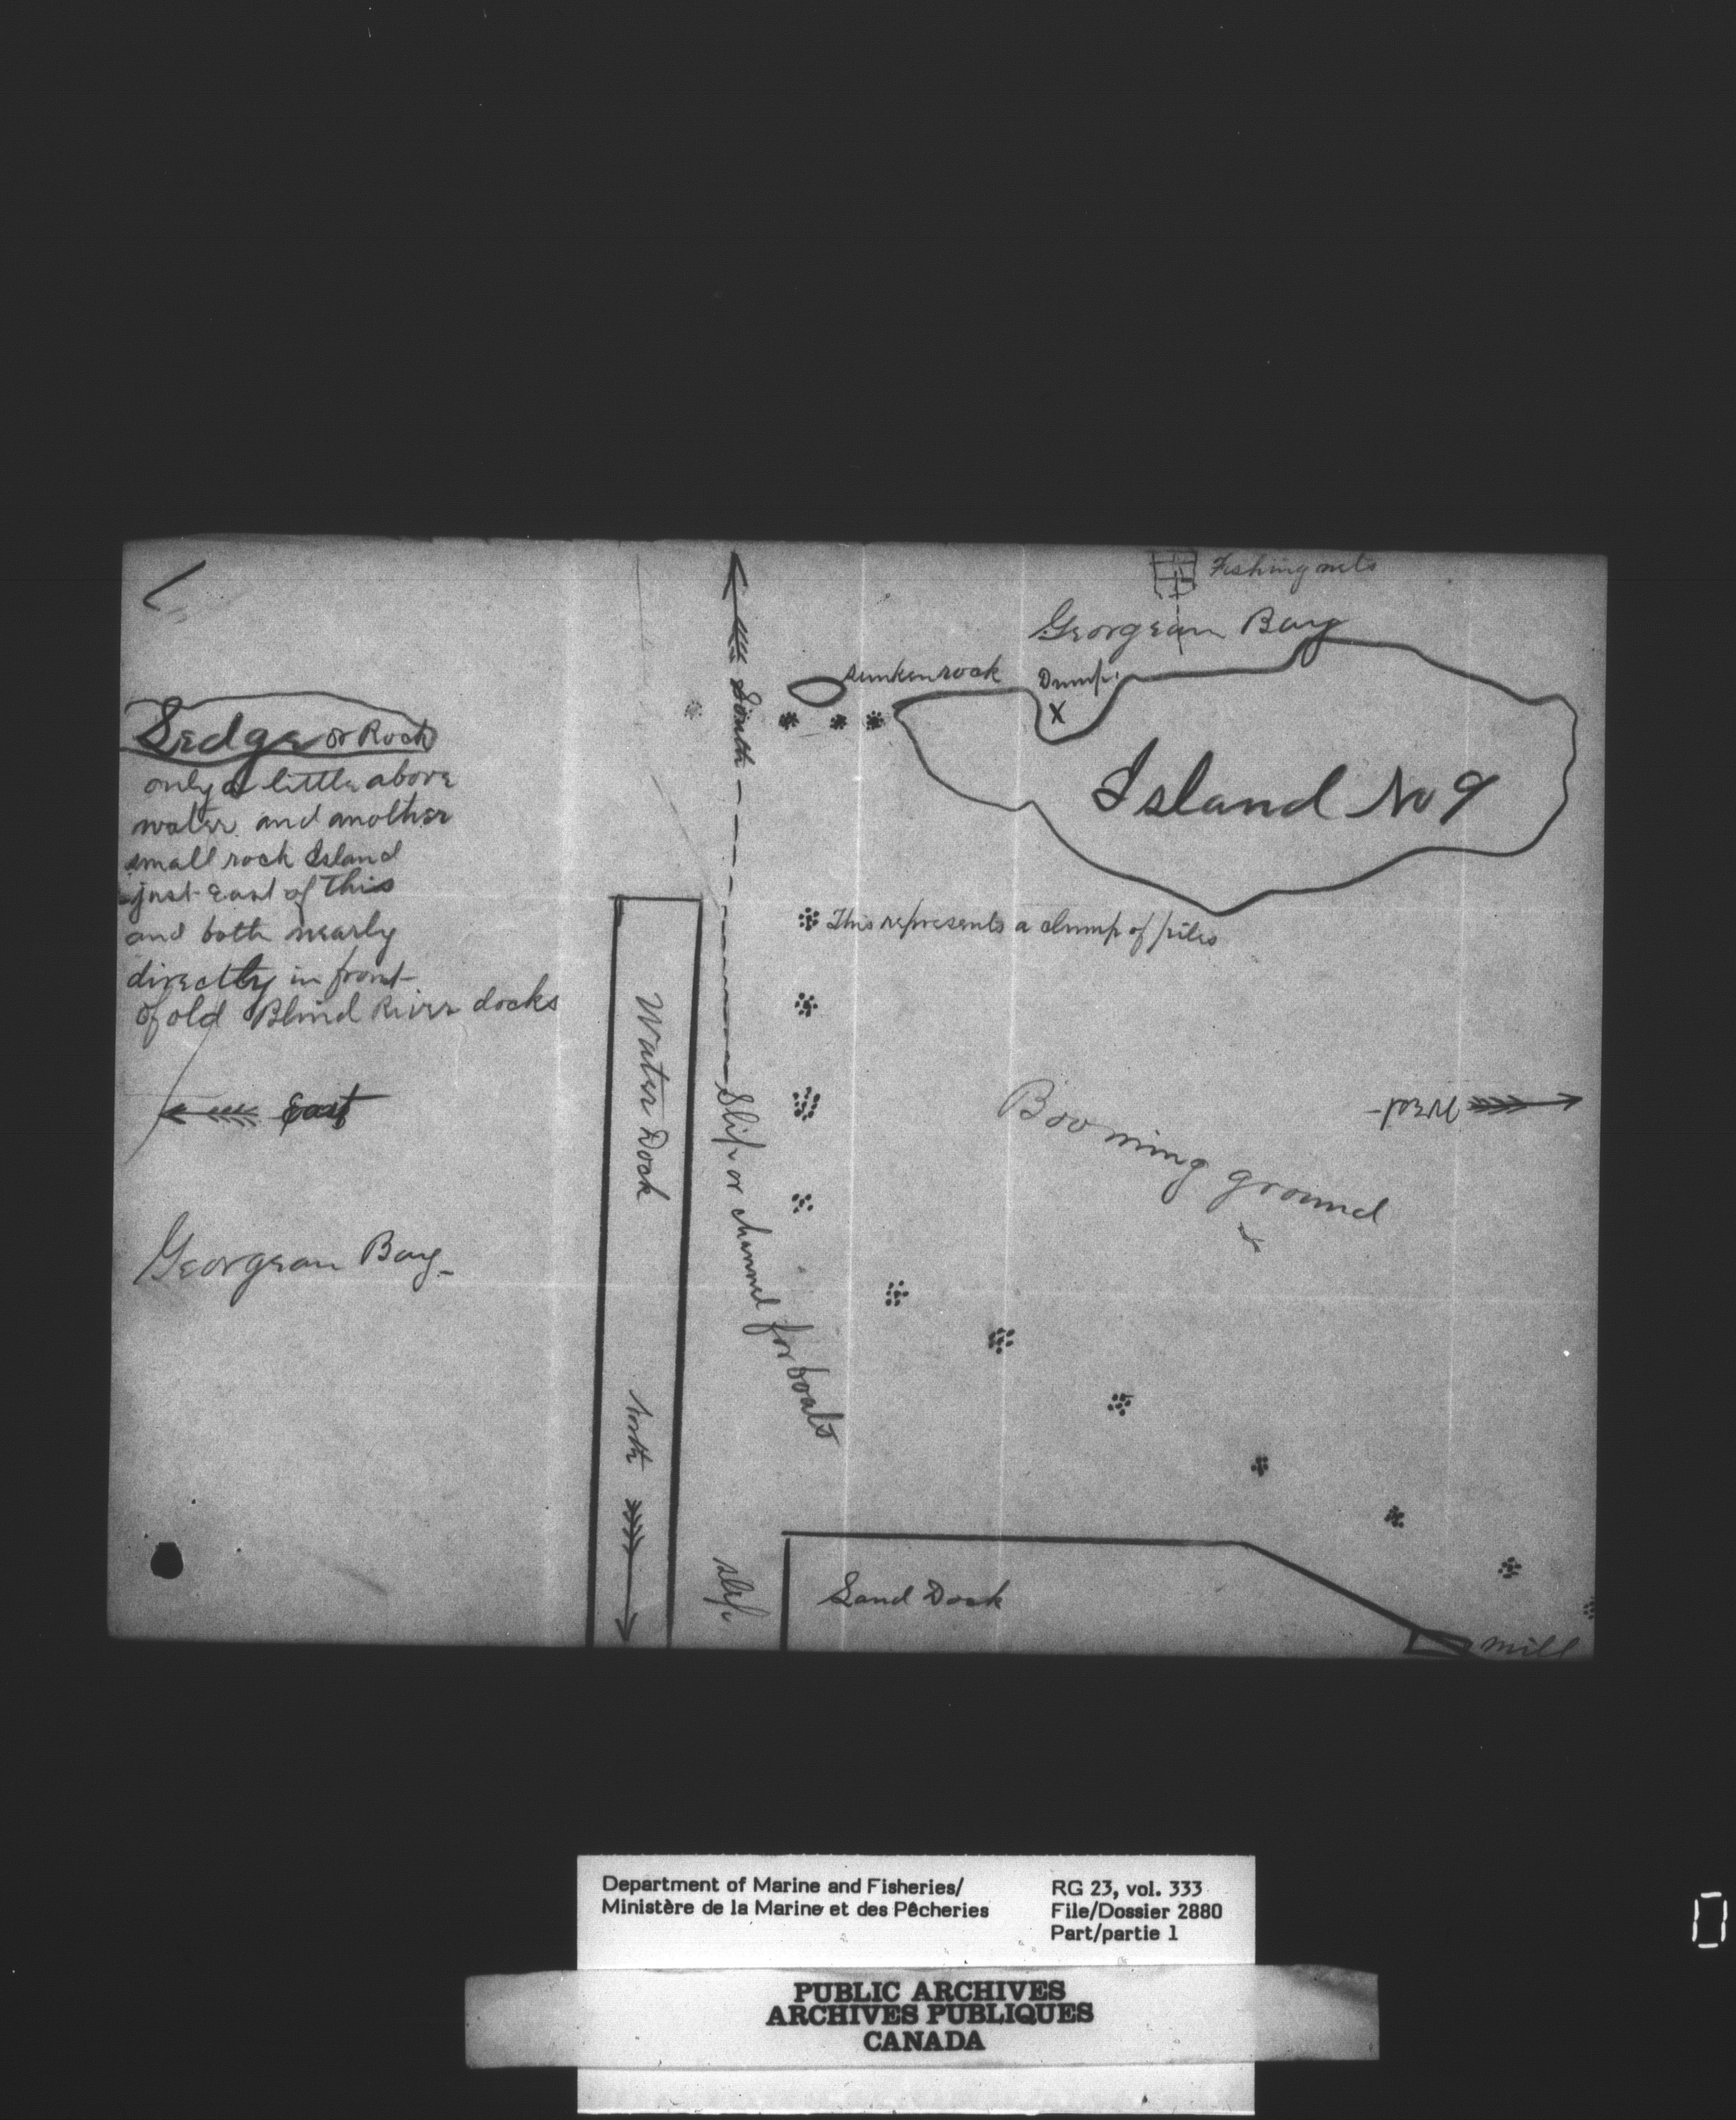 Fishing nets
Georgean Bay
sunken rock
Dump
X
South
Island No 9
Sedge or Rock
only a little above
water and another
small rock Island
just East of this
and both nearly
directly in front
of old Blind River docks
This represents a clump of piles
Water Dock
Slip or channel for boats
East
West
Booming ground
Georgean Bay
north
slip
Sand Dock
mill
Department of Marine and Fisheries/
Ministère de la Marine et des Pêcheries
RG 23, vol. 333
File/Dossier 2880
Part/partie 1
PUBLIC ARCHIVES
ARCHIVES PUBLIQUES
CANADA